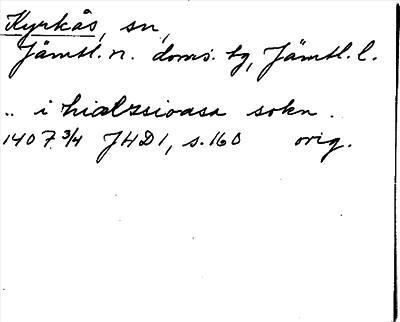 Kyrkås, sn,
Jämtl. n. doms. tg, Jämtl. l.
.. i hialzsioasa sokn.
1407 3/4 JHD1, s. 160 orig.